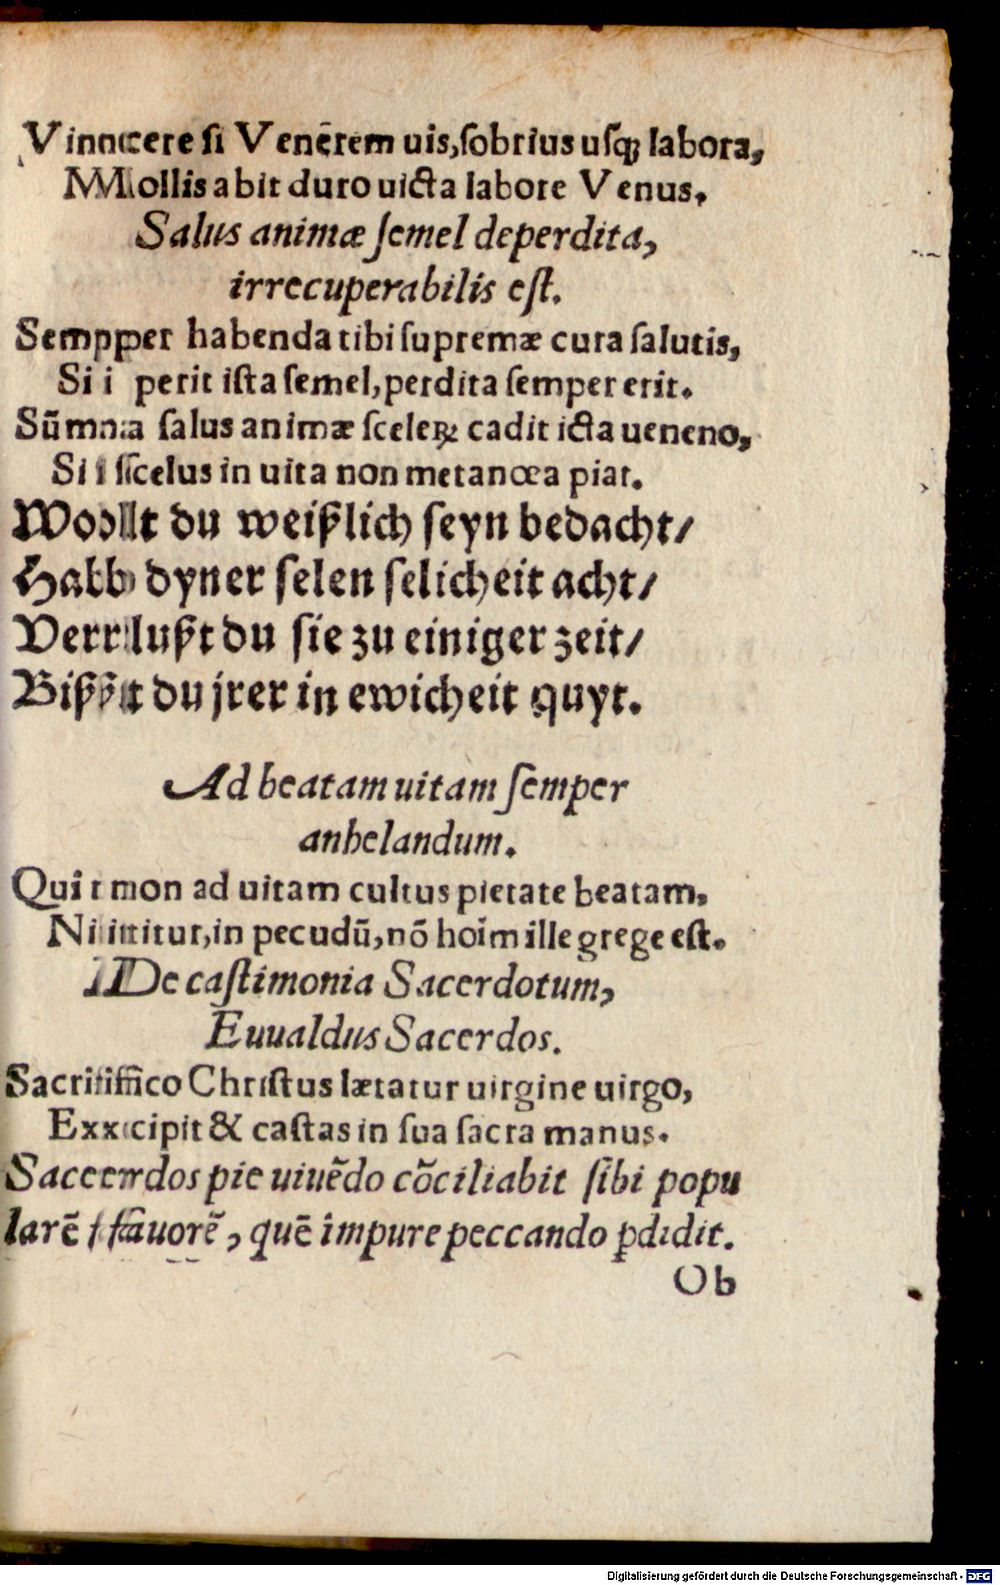 Vincere si Venerem uis, ſobrius uſqꝫ labora,
Mollis abit duro uicta labore Venus.
Salus animæ ſemel deperdita,
irrecuperabilis eſt.
Semper habenda tibi ſupremæ cura ſalutis,
Si perit iſta ſemel, perdita ſemper erit.
Sum̄a ſalus animæ ſceleꝝ cadit icta ueneno,
Si ſcelus in uita non metanœa piat.
Wolt du weißlich ſeyn bedacht/
Hab dyner ſelen ſelicheit acht/
Verlußt du ſie zu einiger zeit/
Bißt du jrer in ewicheit quyt.
Ad beatam uitam ſemper
anhelandum.
Qui mon ad uitam cultus pietate beatam.
Nititur, in pecudū, nō hoīm ille grege eſt.
De caſtimonia Sacerdotum,
Euualdus Sacerdos.
Sacrifico Chriſtus lætatur uirgine uirgo,
Excipit & caſtas in ſua ſacra manus.
Sacerdos pie uiuēdo cōciliabit ſibi popu
larē fauorē, quē impure peccando ꝑdidit.
Ob
Digitalisierung gefördert durch die Deutsche Forschungsgemeinschaft - DFG